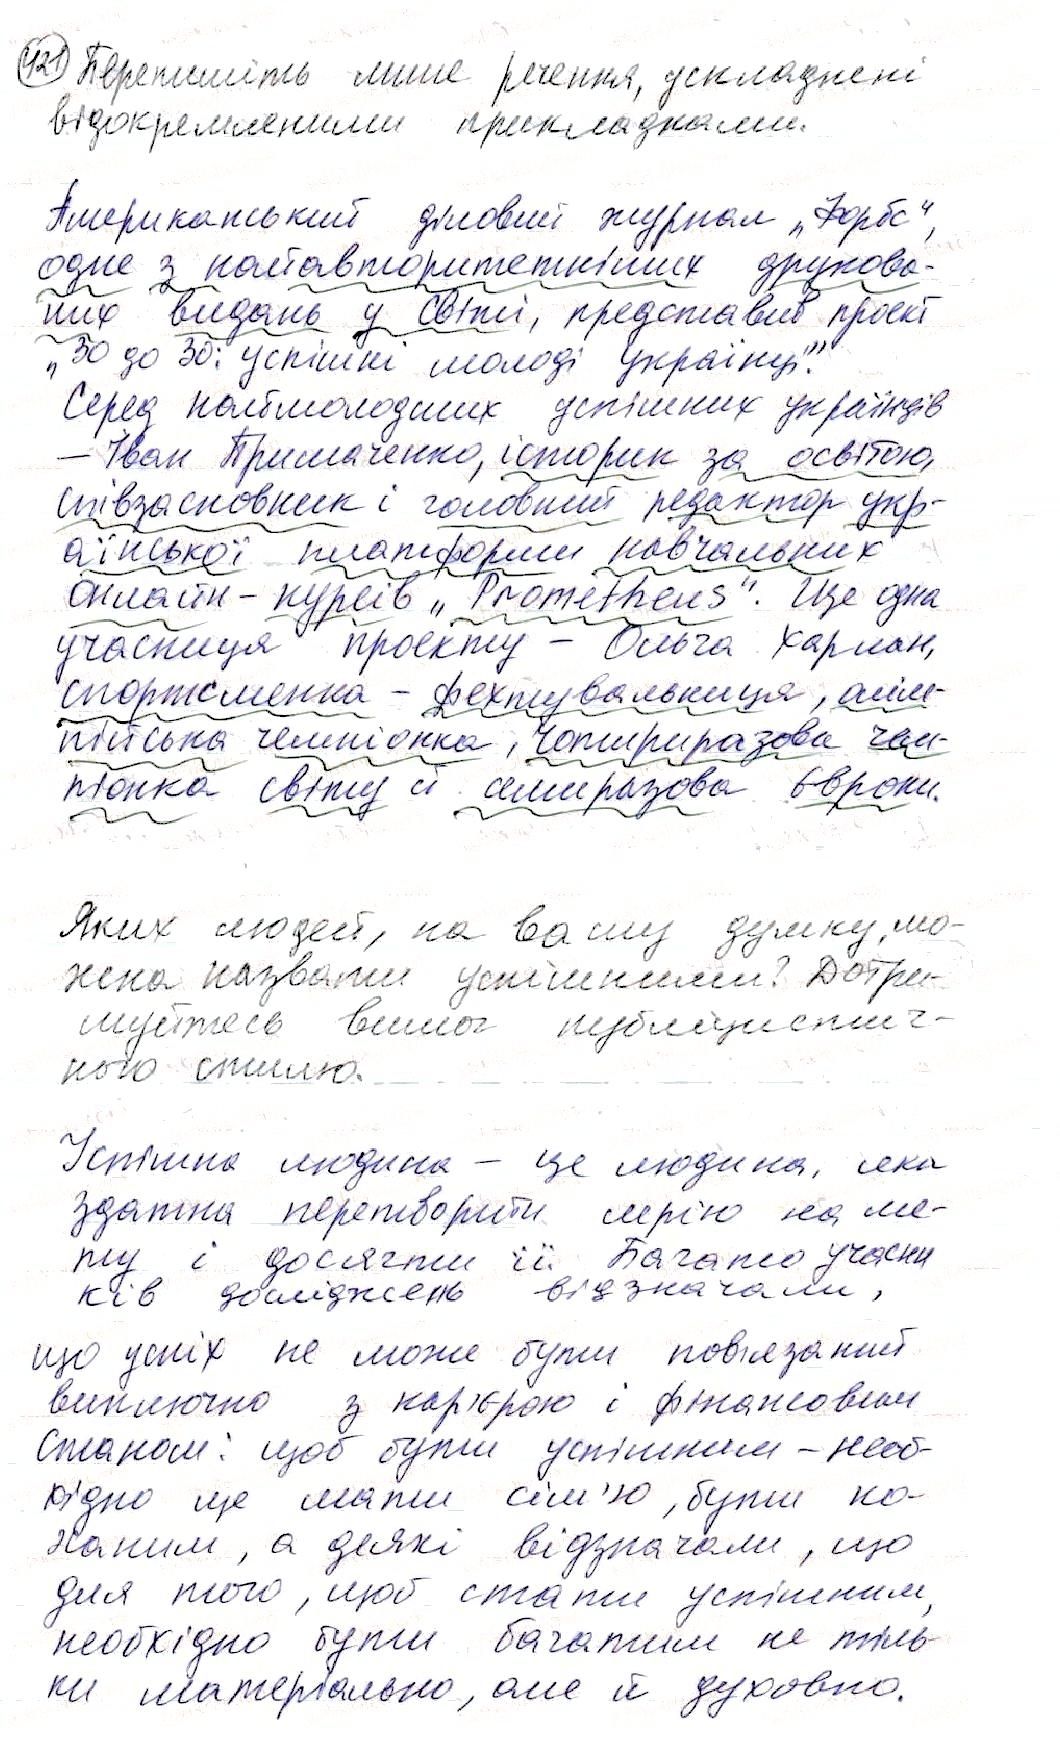 421 Перепишіть лише речення, ускладнені
відокремленими прикладками.
Американський діловий журнал „Форбс",
одне з найавторитетніших друкова-
них видань у світі, представив проєкт
„30 до 30: успішні молоді українці".
Серед наймолодших успішних українців
– Іван Примаченко, історик за освітою,
співзасновник і головний редактор укр-
аїнської платформи навчальних
онлайн - курсів „Prometheus". Ще одна
учасниця проєкту – Ольга Харлан,
спортсменка - фехтувальниця, олім-
пійська чемпіонка, чотириразова чем-
піонка світу й семиразова Європи.
Яких людей, на вашу думку, мо-
жна назвати успішними? Дотри-
муйтесь вимог публіцистич-
ного стилю.
Успішна людина – це людина, яка
здатна перетворити мрію на ме-
ту і досягти її. Багато учасни
ків досліджень відзначали,
що успіх не може бути пов'язаний
виключно з кар'єрою і фінансовим
станом: щоб бути успішним – необ-
хідно ще мати сім'ю, бути ко-
ханим, а деякі відзначали, що
для того, щоб стати успішним,
необхідно бути багатим не тіль-
ки матеріально, але й духовно.